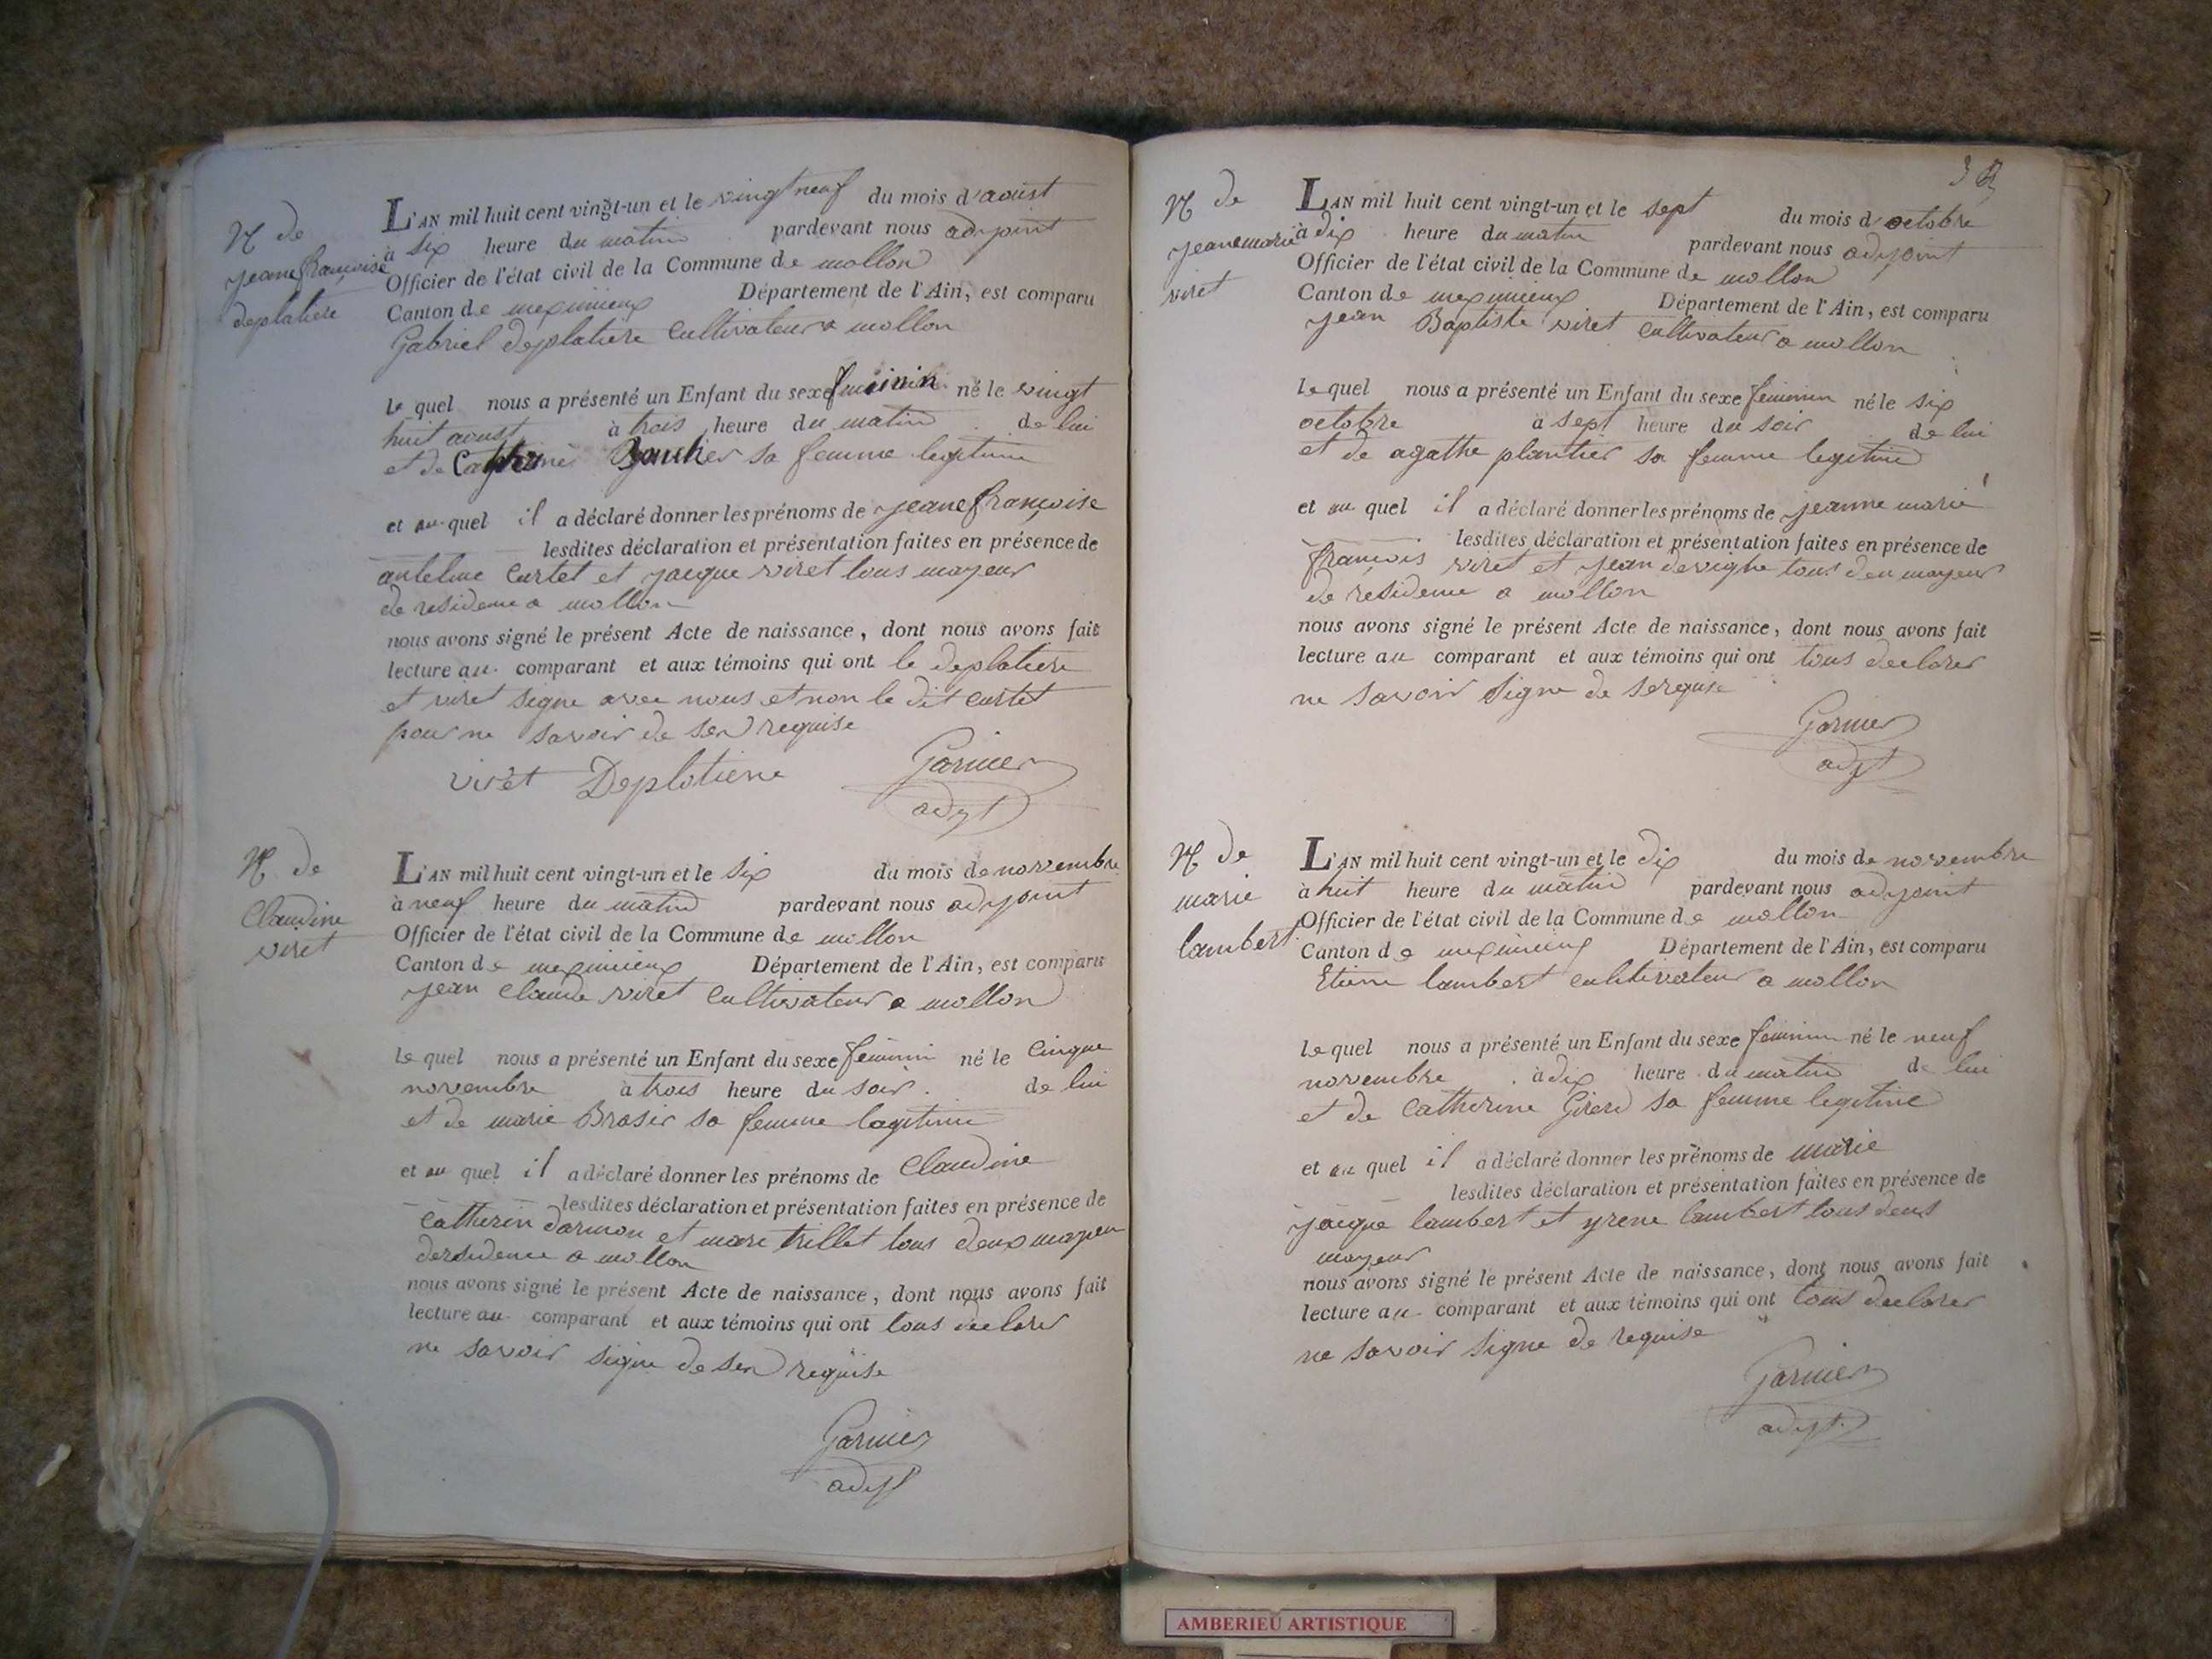 N de
jeane françoise
deplatiere
L'AN mil huit cent vingt-un et le vingt neuf du mois d'aoust
à six heure du matin pardevant nous adjoint
Officier de l'état civil de la Commune de mollon
Canton de meximieux Département de l'Ain, est comparu
Gabriel deplatiere cultivateur a mollon
le quel nous a présenté un Enfant du sexe feminin né le vingt
huit aoust à trois heure du matin de lui
et de Catherine sa femme legitime
et au quel il a déclaré donner les prénoms de jeane françoise
lesdites déclaration et présentation faites en présence de
antelme curtet et jacque viret tous mayeur
de residence a mollon
nous avons signé le présent Acte de naissance, dont nous avons fait
lecture au comparant et aux témoins qui ont le deplatiere
et viret signe avec nous et non le dit curtet
pour ne savoir de sen requise
viret Deplatiere Garnier
adjt
N de
Claudine
viret
L'AN mil huit cent vingt-un et le six du mois de novembre
à neuf heure du matin pardevant nous adjoint
Officier de l'état civil de la Commune de mollon
Canton de meximieux Département de l'Ain, est comparu
jean claude viret cultivateur a mollon
le quel nous a présenté un Enfant du sexe feminin né le cinque
novembre à trois heure du soir de lui
et de marie Brasir sa femme lagitime
et au quel il a déclaré donner les prénoms de Claudine
lesdites déclaration et présentation faites en présence de
catherin darmon et marc trillet tous deux mayeur
deresidence a mollon
nous avons signé le présent Acte de naissance, dont nous avons fait
lecture au comparant et aux témoins qui ont tous declarer
ne savoir signe de sen requise
Garnier
adjt
N de
jeane marie
viret
L'AN mil huit cent vingt-un et le sept du mois d'octobre
à dix heure du matin pardevant nous adjoint
Officier de l'état civil de la Commune de mollon
Canton de meximieux Département de l'Ain, est comparu
jean Baptiste viret cultivateur a mollon
le quel nous a présenté un Enfant du sexe feminin né le six
octobre à sept heure du soir de lui
et de agathe plantier sa femme legitime
et au quel il a déclaré donner les prénoms de jeanne marie
lesdites déclaration et présentation faites en présence de
francois viret et jean devighe tous deu mayeur
de residence a mollon
nous avons signé le présent Acte de naissance, dont nous avons fait
lecture au comparant et aux témoins qui ont tous declarer
ne savoir signe de serequise
Garnier
adjt
N de
marie
lambert
L'AN mil huit cent vingt-un et le dix du mois de novembre
à huit heure du matin pardevant nous adjoint
Officier de l'état civil de la Commune de mollon
Canton de meximieux Département de l'Ain, est comparu
Etiene lambert cultivateur a mollon
le quel nous a présenté un Enfant du sexe feminin né le neuf
novembre à dix heure du matin de lui
et de catherine Girerd sa femme legitime
et au quel il a déclaré donner les prénoms de marie
lesdites déclaration et présentation faites en présence de
jacque lambert et yrene lambert tous deus
mayeur
nous avons signé le présent Acte de naissance, dont nous avons fait
lecture au comparant et aux témoins qui ont tous declarer
ne savoir signe de requise
Garnier
adjt.
AMBERIEU ARTISTIQUE